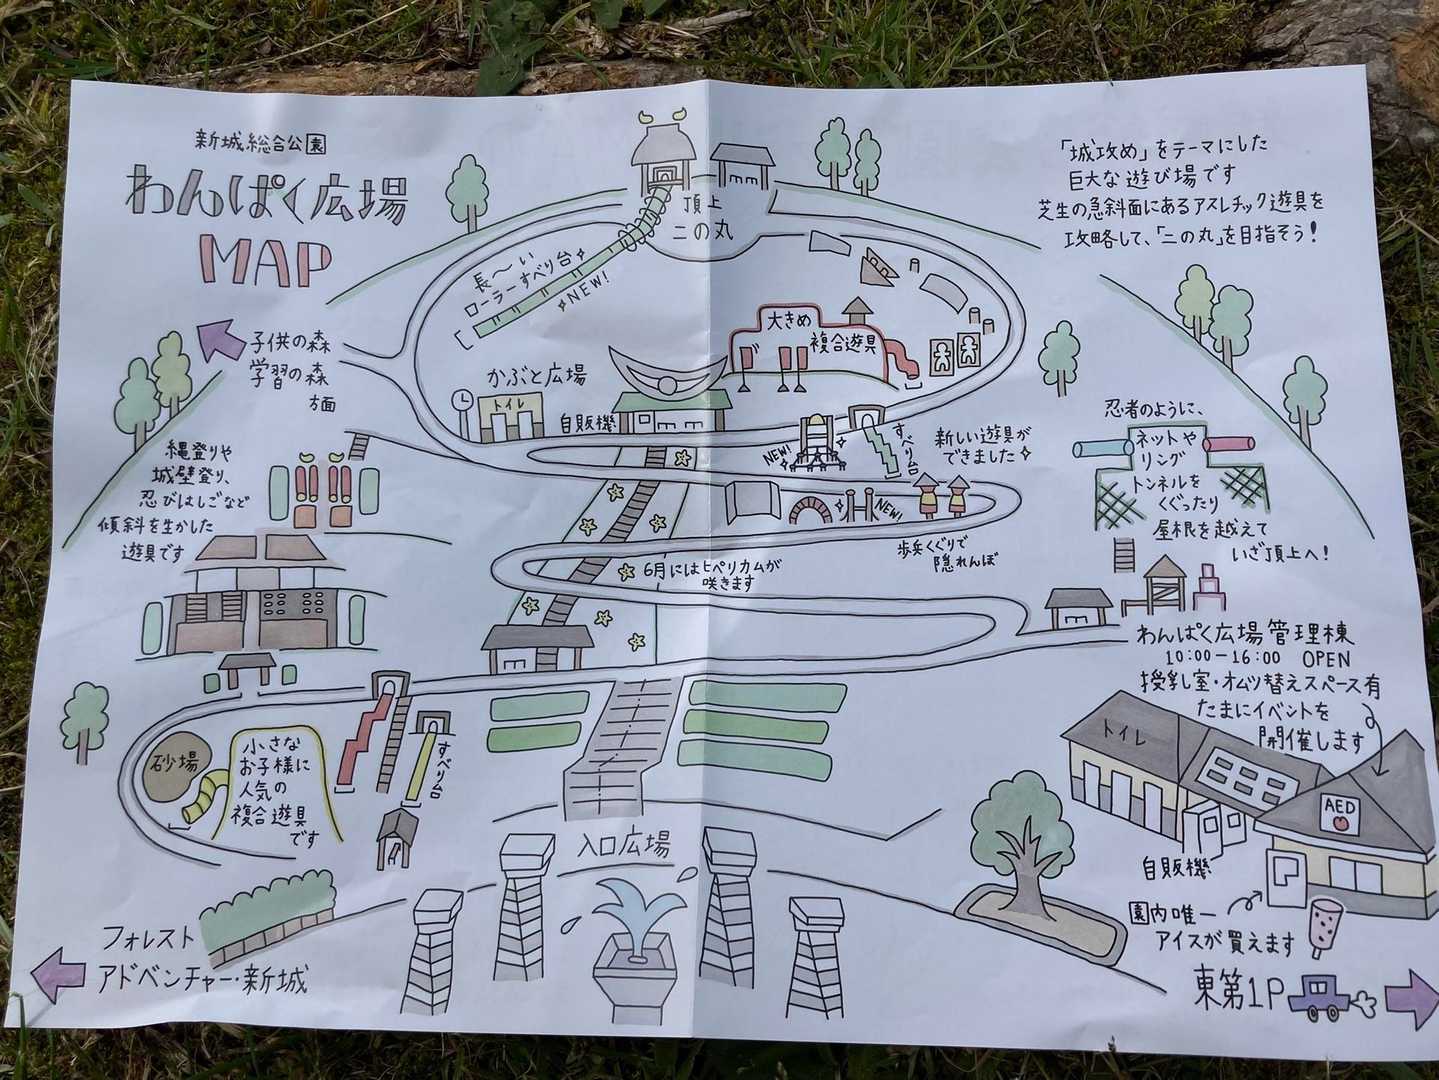 新城総合公園
わんぱく広場
MAP
「城攻め」をテーマにした
巨大な遊び場です
芝生の急斜面にあるアスレチック遊具を
攻略して、「二の丸」を目指そう!
頂上
二の丸
長〜い
ローラーすべり台
NEW!
子供の森
学習の森
方面
大きめ
複合遊具
かぶと広場
トイレ
自販機
縄登りや
城壁登り、
忍びはしごなど
傾斜を生かした
遊具です
NEW!
すべり台
新しい遊具が
できました
NEW!
歩兵くぐりで
隠れんぼ
忍者のように、
ネットや
リング
トンネルを
くぐったり
屋根を越えて
いざ頂上へ!
6月にはヒペリカムが
咲きます
わんぱく広場管理棟
10:00-16:00 OPEN
授乳室・オムツ替えスペース有
たまにイベントを
開催します
トイレ
AED
自販機
園内唯一
アイスが買えます
砂場
小さな
お子様に
人気の
複合遊具
です
すべり台
入口広場
フォレスト
アドベンチャー・新城
東第1P